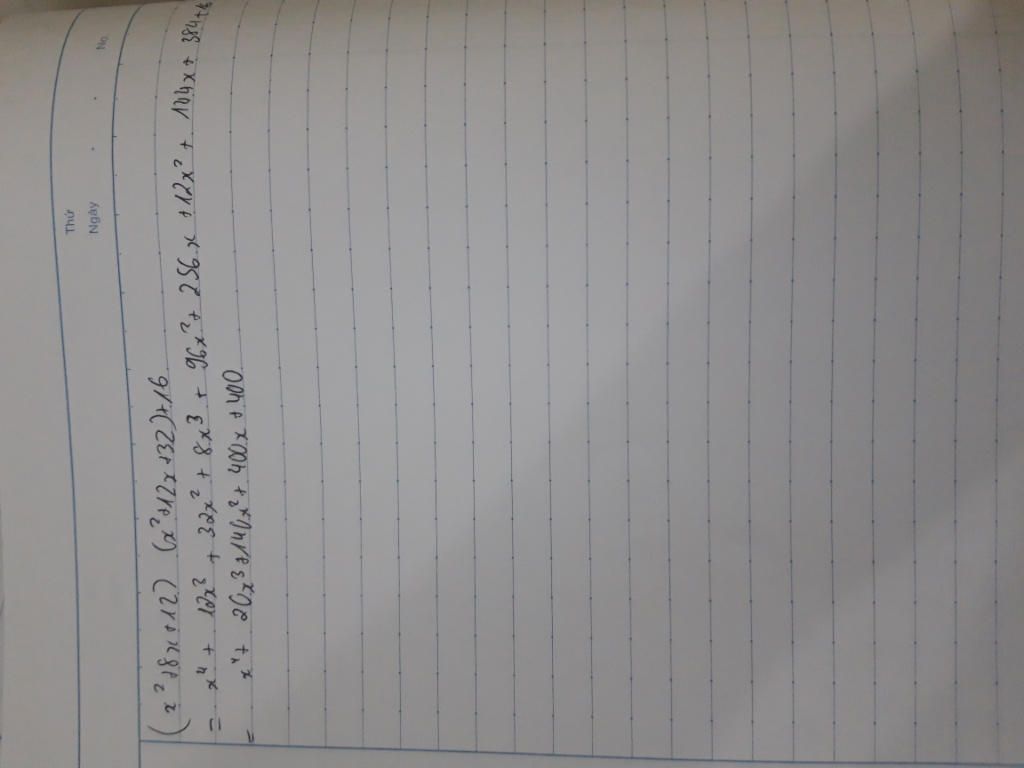 Thứ
Ngày
No.
(x²+8x+12) (x²+12x+32)+16
= x⁴ + 12x³ + 32x² + 8x³ + 96x² + 256x + 12x² + 144x + 384+16
= x⁴ + 20x³+140x²+ 400x +400